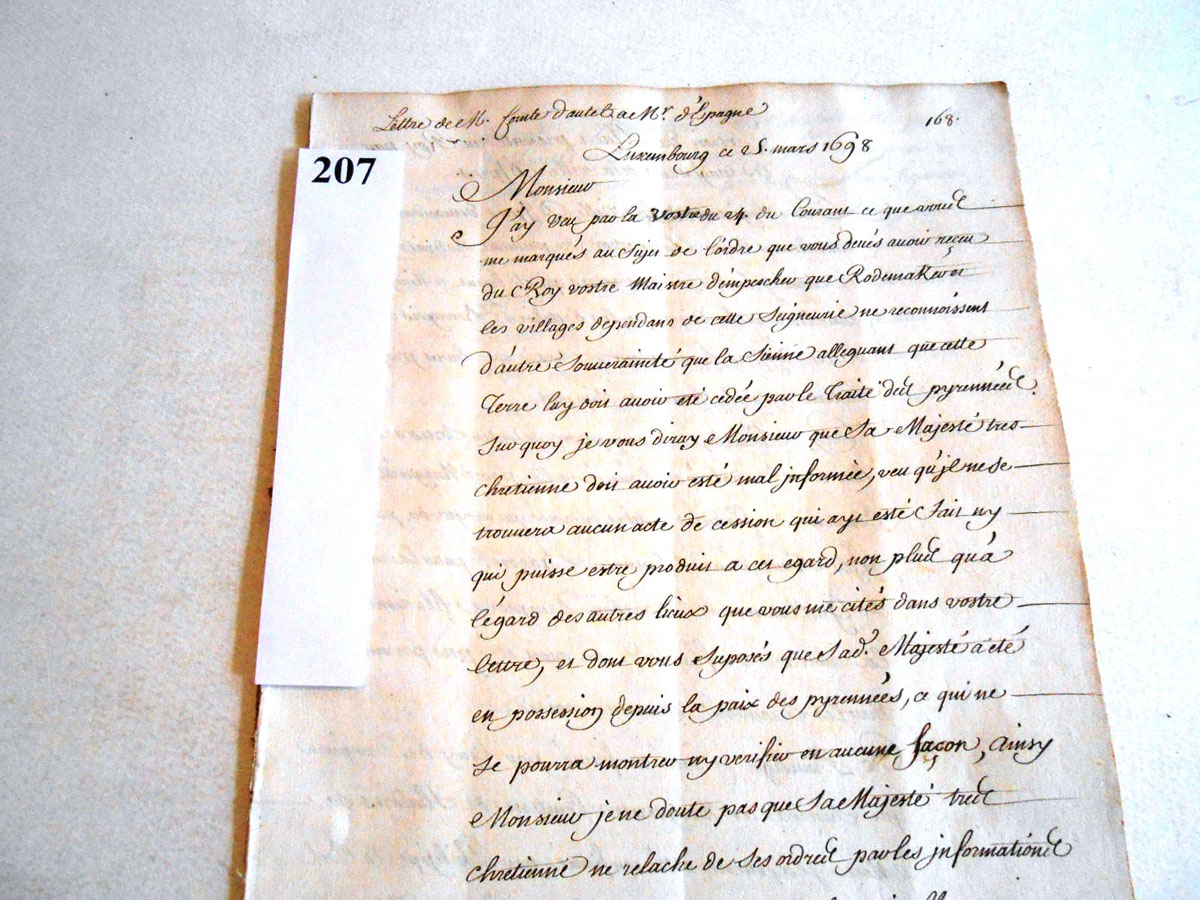 Lettre de M. Comte d'autel a Mr. d'Espagne
168.
207
Luxembourg ce 25. mars 1698
Monsieur
J'ay veu par la vostre du 24. du Courant ce que vous
me marqués au sujet de l'ordre que vous devés avoir reçeu
du Roy vostre Maistre d'empescher que Rodemaker et
les villages dependans de cette Seigneurie ne reconnoissent
d'autre Souveraineté que la Sienne alleguant que cette
Terre luy doit avoir eté cedée par le Traité des pyrennées.
Sur quoy je vous diray Monsieur que Sa Majesté tres
chretienne doit avoir esté mal informée, veu qu'il ne se
trouvera aucun acte de cession qui ayt esté fait ny
qui puisse estre produit a cet egard, non plus qu'a
l'égard des autres lieux que vous me cités dans vostre
lettre, et dont vous suposés que Sad. Majesté a été
en possession depuis la paix des pyrennées, ce qui ne
se pourra montrer ny verifier en aucune façon, ainsy
Monsieur je ne doute pas que Sa Majesté tres
chretienne ne relache de ses ordres par les informations